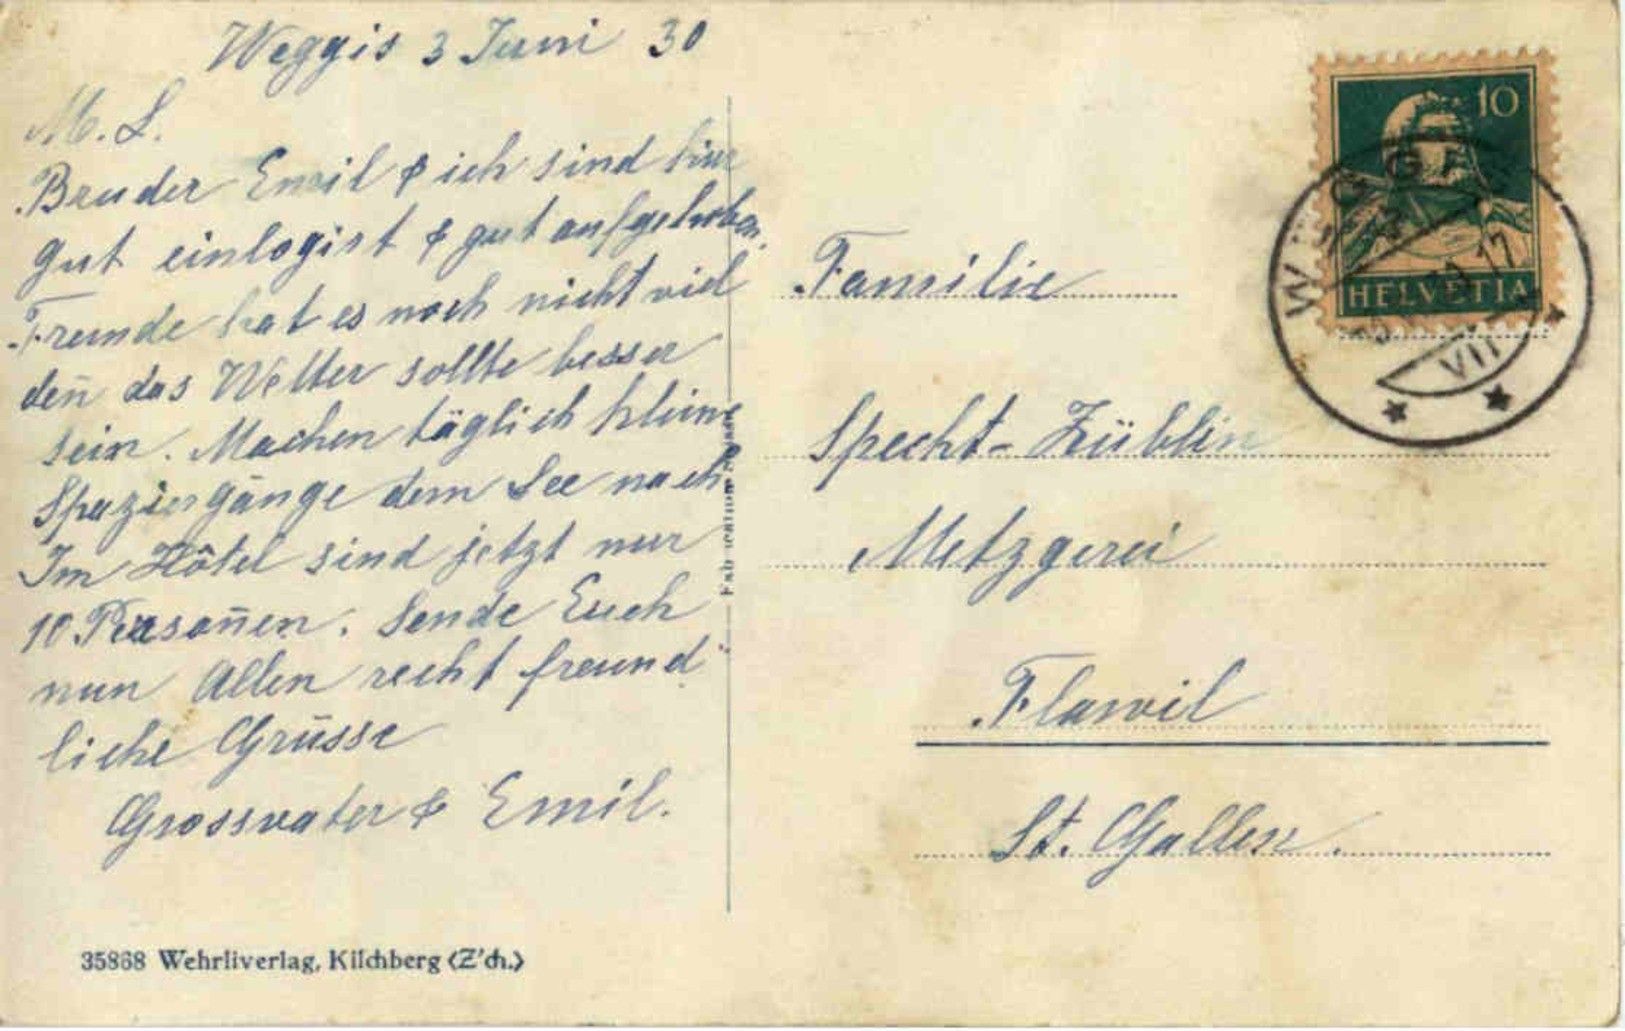 Weggis 3 Juni 30
M. L.
Bruder Emil & ich sind hier
gut einlogirt & gut aufgehoben.
Fremde hat es noch nicht viel
den̄ das Wetter sollte besser
sein. Machen täglich kleine
Spaziergänge dem See nach
Im Hôtel sind jetzt nur
10 Person̄en. Sende Euch
nun Allen recht freund
liche Grüsse
Grossvater & Emil.
35868 Wehrliverlag, Kilchberg (Z'ch.)
10
HELVETIA
WEGGIS
17
VII
Familie
Specht-Züblin
Metzgerei
Flawil
St. Gallen.